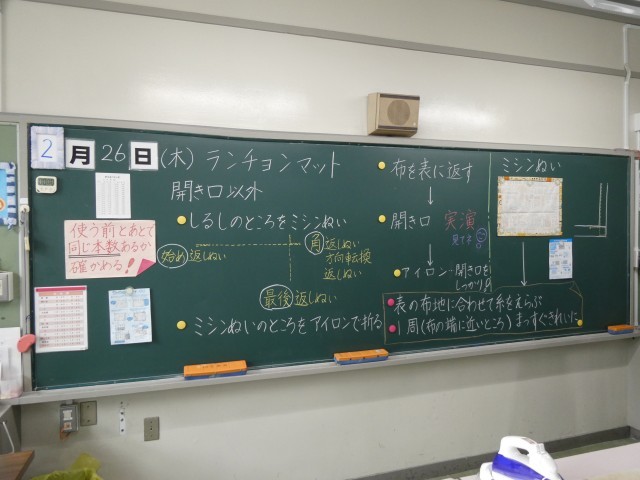 2月26日(木) ランチョンマット
開き口以外
しるしのところをミシンぬい
始め返しぬい
角返しぬい
方向転換
返しぬい
最後返しぬい
ミシンぬいのところをアイロンで折る
使う前とあとで
同じ本数あるか
確かめる!
布を表に返す
↓
開き口 実演
見てネ
↓
アイロン-開き口を
しっかり
ミシンぬい
表の布地に合わせて糸をえらぶ
1周(布の端に近いところ)まっすぐきれいに